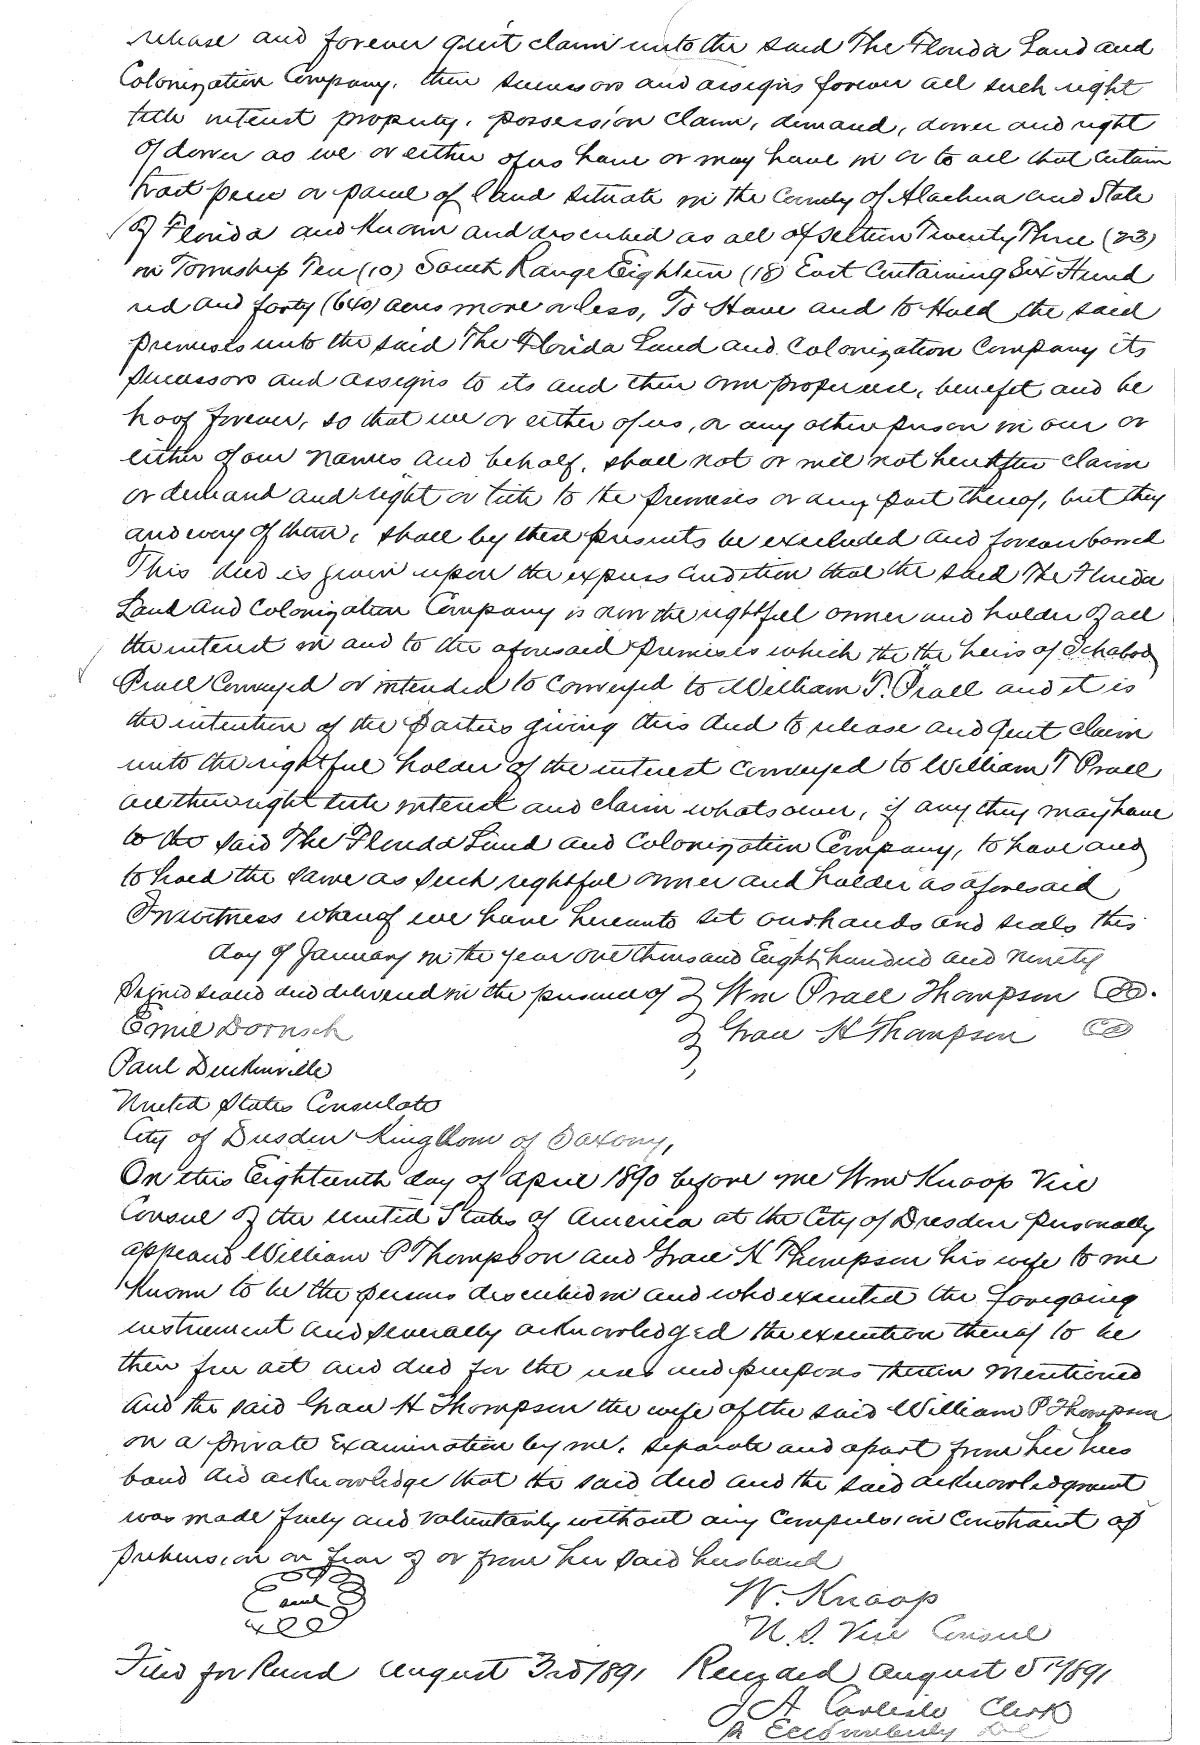 release and forever quit claim unto the said The Florida Land and
Colonization Company, their successors and assigns forever all such right
title interest property, possession claim, demand, dower and right
of dower as we or either of us have or may have in or to all that certain
tract piece or parcel of land situate in the County of Alachua and State
of Florida and known and described as all of Section Twenty Three (23)
in Township Ten (10) South Range Eighteen (18) East Containing Six Hund
red and forty (640) acres more or less, To Have and to Hold the said
premises unto the said The Florida Land and Colonization Company its
successors and assigns to its and their own proper use, benefit and be
hoof forever, so that we or either of us, or any other person in our or
either of our names and behalf, shall not or will not hereafter claim
or demand and right or title to the premises or any part thereof, but they
and every of them, shall by these presents be excluded and forever barred
This deed is given upon the express condition that the said The Florida
Land and Colonization Company is now the rightful owner and holder of all
the interest in and to the aforesaid premises which the the heirs of Ichabod
Prall Conveyed or intended to conveyed to William T. Prall and it is
the intention of the Parties giving this deed to release and Quit claim
unto the rightful holder of the interest conveyed to William T Prall
all their right title interest and claim whatsoever, if any they may have
to the said The Florida Land and Colonization Company, to have and
to hold the same as such rightful owner and holder as aforesaid
In witness whereof we have hereunto set our hands and seals this
day of January in the year one thousand Eight hundred and ninety
Signed sealed and delivered in the presence of Wm Prall Thompson
Emil Dornsch Grace H Thompson
Paul
United States Consulate
City of Dresden Kingdom of Saxony,
On this Eighteenth day of April 1890 before me Wm Knoop Vice
Consul of the United States of America at the City of Dresden personally
appeared William P Thompson and Grace H Thompson his wife to me
known to be the persons described in and who executed the foregoing
instrument and severally acknowledged the execution thereof to be
their free act and deed for the uses and purposes therein mentioned
And the said Grace H Thompson the wife of the said William P Thompson
on a private Examination by me, separate and apart from her hus
band did acknowledge that the said deed and the said acknowledgment
was made freely and voluntarily without any Compulsion Constraint ap
prehension or fear of or from her said husband
seal W. Knoop
U.S. Vice Consul
Filed for Record August 3rd 1891 Recorded August 5th 1891
J A Carlisle Clerk